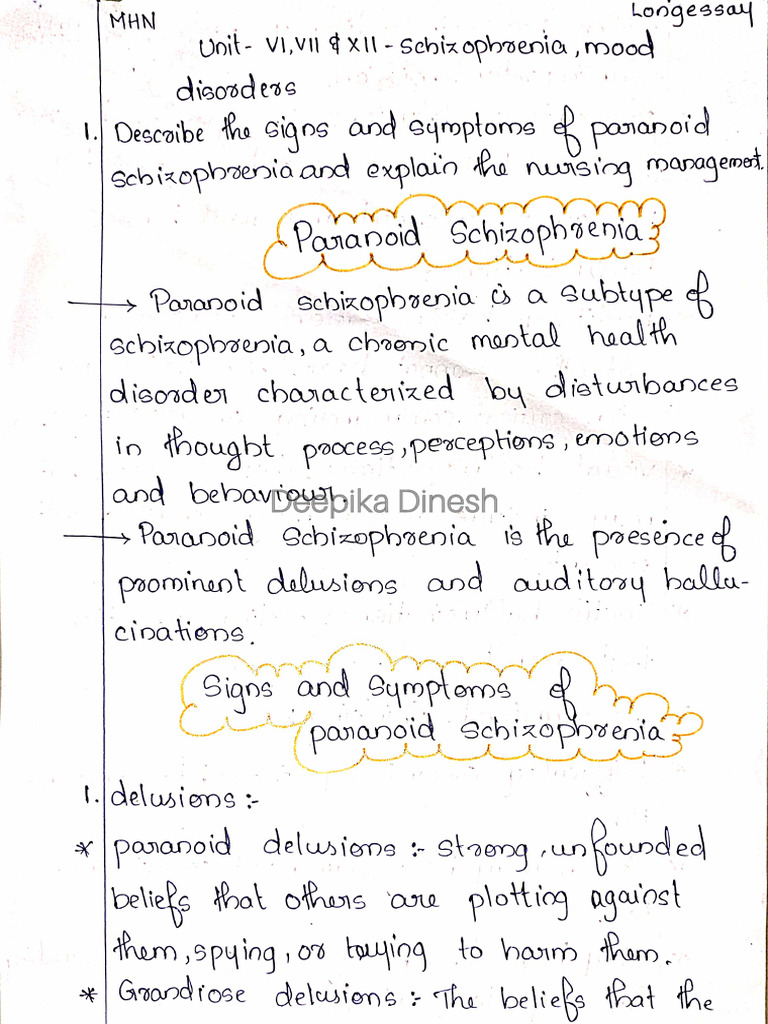 MHN
Longessay
Unit - VI, VII & XII - Schizophrenia, mood
disorders
1. Describe the signs and symptoms of paranoid
schizophrenia and explain the nursing management.
Paranoid Schizophrenia
→ Paranoid schizophrenia is a subtype of
schizophrenia, a chronic mental health
disorder characterized by disturbances
in thought process, perceptions, emotions
and behaviour.
Deepika Dinesh
→ Paranoid Schizophrenia is the presence of
prominent delusions and auditory hallu-
cinations.
Signs and Symptoms of
paranoid schizophrenia
1. delusions :-
* paranoid delusions :- Strong, unfounded
beliefs that others are plotting against
them, spying, or trying to harm them.
* Grandiose delusions :- The beliefs that the